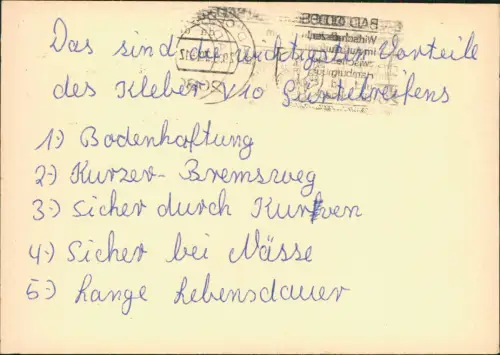 Das sind die wichtigsten Vorteile
des Kleber V10 Gürtelreifens
1.) Bodenhaftung
2.) Kurzer Bremsweg
3.) Sicher durch Kurven
4.) Sicher bei Nässe
5.) Lange Lebensdauer